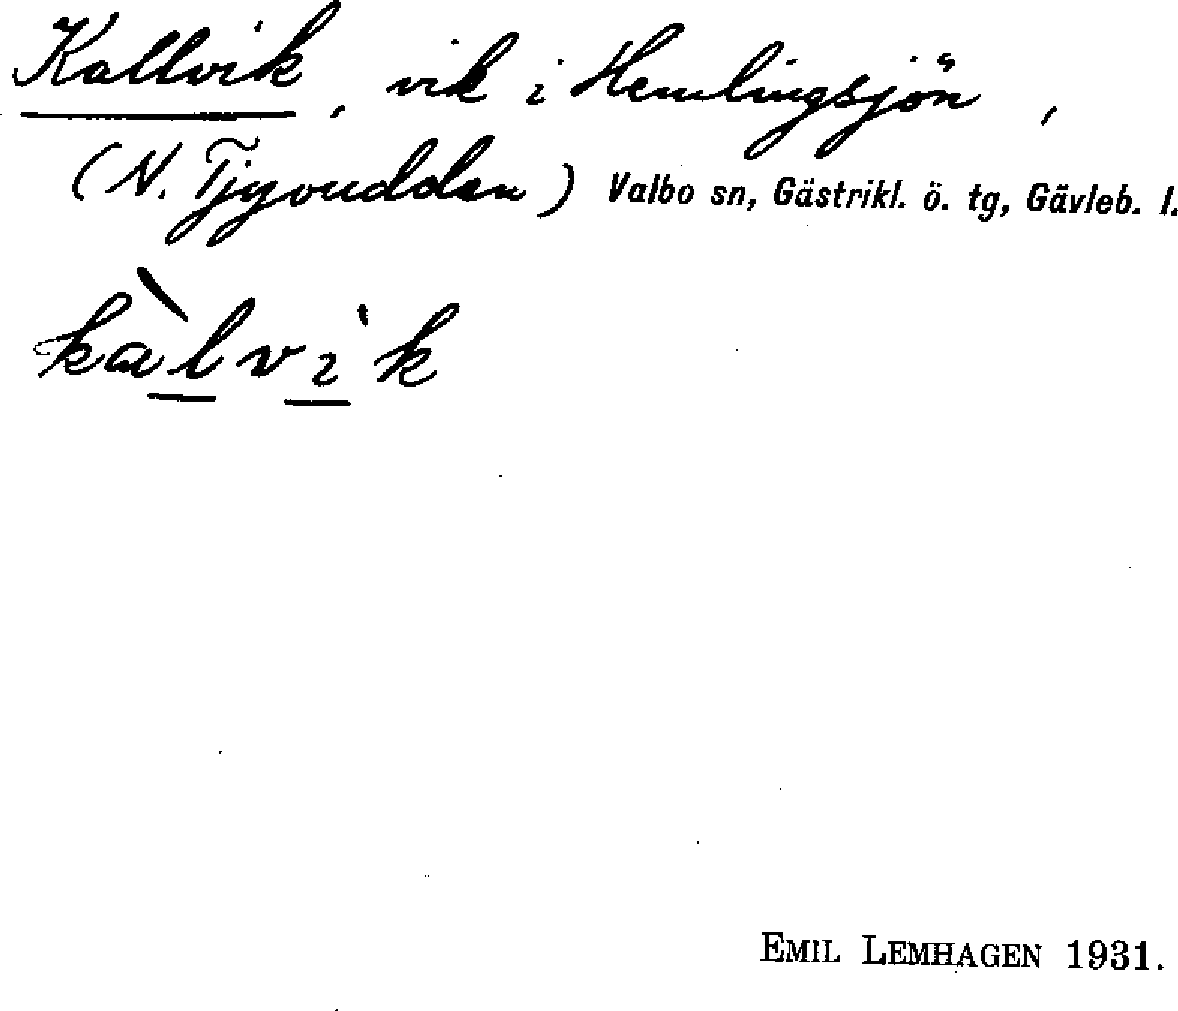 Kallvik, vik i Hemlingsjön,
(N. Tjyvudden) Valbo sn, Gästrikl. ö. tg, Gävleb. l.
kàlvik
EMIL LEMHAGEN 1931.